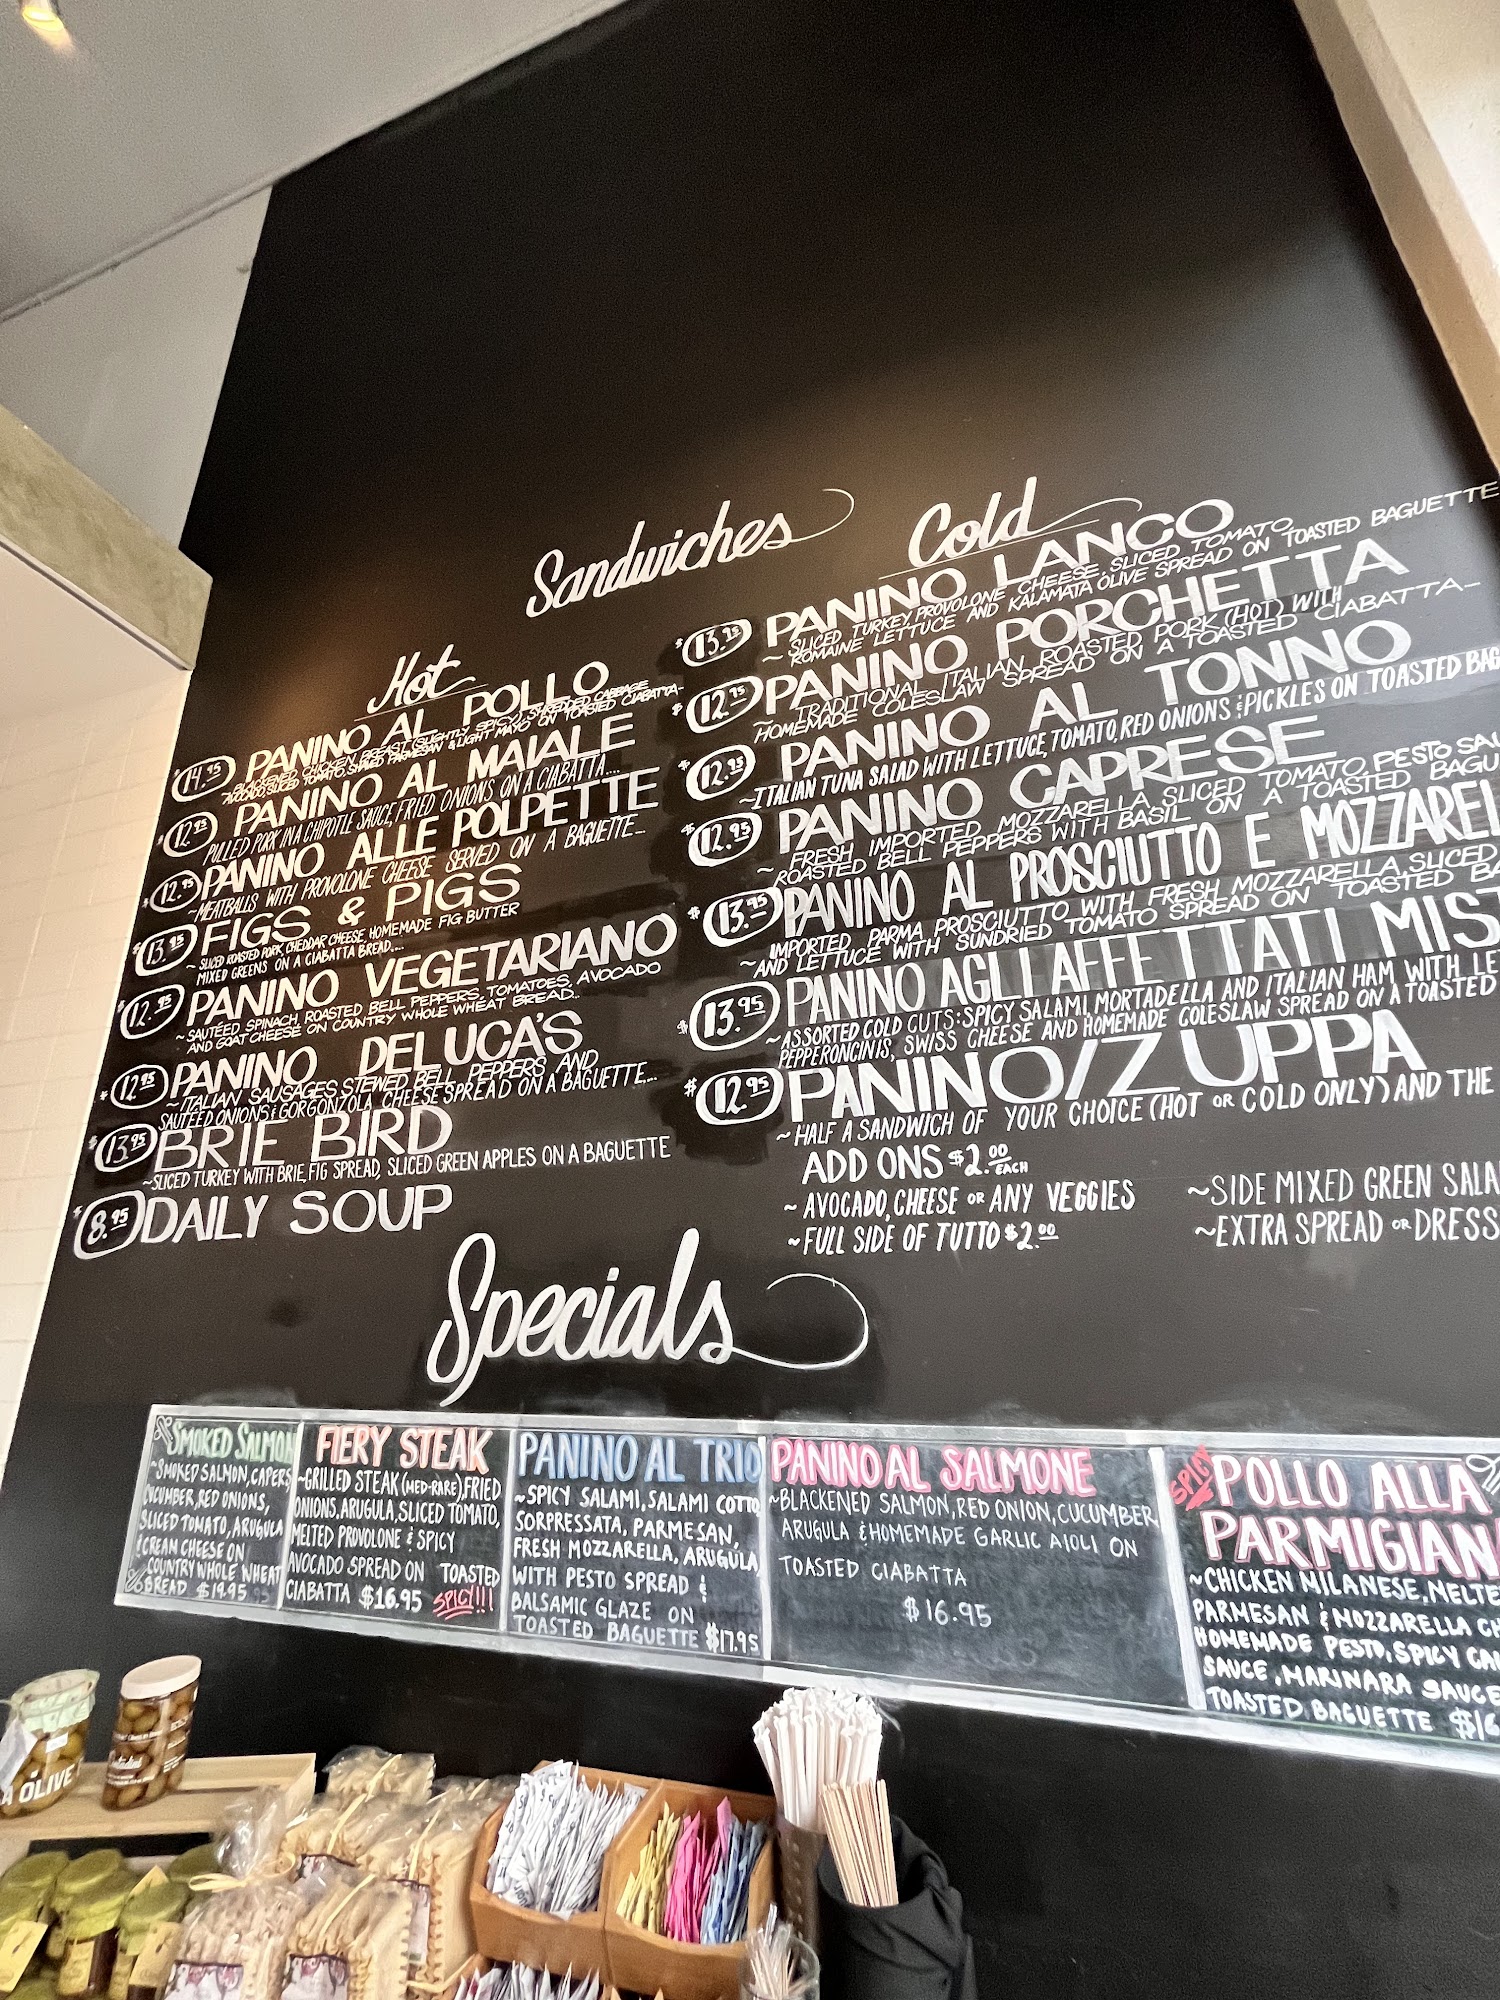 Sandwiches
Hot
$14.95 PANINO AL POLLO
~BLACKENED CHICKEN BREAST (SLIGHTLY SPICY), SHREDDED CABBAGE
AVOCADO, SLICED TOMATO, SHAVED PARMESAN & LIGHT MAYO ON TOASTED CIABATTA~
$12.95 PANINO AL MAIALE
PULLED PORK IN A CHIPOTLE SAUCE, FRIED ONIONS ON A CIABATTA....
$12.95 PANINO ALLE POLPETTE
~MEATBALLS WITH PROVOLONE CHEESE SERVED ON A BAGUETTE...
$13.95 FIGS & PIGS
~SLICED ROASTED PORK, CHEDDAR CHEESE, HOMEMADE FIG BUTTER
MIXED GREENS ON A CIABATTA BREAD....
$12.95 PANINO VEGETARIANO
~SAUTÉED SPINACH, ROASTED BELL PEPPERS, TOMATOES, AVOCADO
AND GOAT CHEESE ON COUNTRY WHOLE WHEAT BREAD..
$12.95 PANINO DELUCA'S
~ITALIAN SAUSAGES, STEWED BELL PEPPERS AND
SAUTÉED ONIONS & GORGONZOLA CHEESE SPREAD ON A BAGUETTE...
$13.95 BRIE BIRD
~SLICED TURKEY WITH BRIE, FIG SPREAD, SLICED GREEN APPLES ON A BAGUETTE
$8.95 DAILY SOUP
Cold
$13.95 PANINO LANCO
~SLICED TURKEY, PROVOLONE CHEESE, SLICED TOMATO,
ROMAINE LETTUCE AND KALAMATA OLIVE SPREAD ON TOASTED BAGUETTE
$12.95 PANINO PORCHETTA
~TRADITIONAL ITALIAN ROASTED PORK (HOT) WITH
HOMEMADE COLESLAW SPREAD ON A TOASTED CIABATTA~
$12.95 PANINO AL TONNO
~ITALIAN TUNA SALAD WITH LETTUCE, TOMATO, RED ONIONS & PICKLES ON TOASTED BAG
$12.95 PANINO CAPRESE
~FRESH IMPORTED MOZZARELLA, SLICED TOMATO, PESTO SA
ROASTED BELL PEPPERS WITH BASIL ON A TOASTED BAGU
$13.95 PANINO AL PROSCIUTTO E MOZZAREL
IMPORTED PARMA PROSCIUTTO WITH FRESH MOZZARELLA, SLICED
~AND LETTUCE WITH SUNDRIED TOMATO SPREAD ON TOASTED BA
$13.95 PANINO AGLI AFFETTATI MIS
~ASSORTED COLD CUTS: SPICY SALAMI, MORTADELLA AND ITALIAN HAM WITH LE
PEPPERONCINIS, SWISS CHEESE AND HOMEMADE COLESLAW SPREAD ON A TOASTED
$12.95 PANINO/ZUPPA
~HALF A SANDWICH OF YOUR CHOICE (HOT OR COLD ONLY) AND THE
ADD ONS $2.00 EACH
~AVOCADO, CHEESE OR ANY VEGGIES
~FULL SIDE OF TUTTO $2.00
~SIDE MIXED GREEN SALA
~EXTRA SPREAD OR DRESS
Specials
SMOKED SALMON
~SMOKED SALMON, CAPERS
CUCUMBER, RED ONIONS,
SLICED TOMATO, ARUGULA
& CREAM CHEESE ON
COUNTRY WHOLE WHEAT
BREAD $14.95
FIERY STEAK
~GRILLED STEAK (MED-RARE), FRIED
ONIONS, ARUGULA, SLICED TOMATO,
MELTED PROVOLONE & SPICY
AVOCADO SPREAD ON TOASTED
CIABATTA $16.95 SPICY!!!
PANINO AL TRIO
~SPICY SALAMI, SALAMI COTTO,
SORPRESSATA, PARMESAN,
FRESH MOZZARELLA, ARUGULA
WITH PESTO SPREAD &
BALSAMIC GLAZE ON
TOASTED BAGUETTE $17.95
PANINO AL SALMONE
~BLACKENED SALMON, RED ONION, CUCUMBER,
ARUGULA & HOMEMADE GARLIC AIOLI ON
TOASTED CIABATTA
$16.95
SPICY POLLO ALLA
PARMIGIAN
~CHICKEN MILANESE, MELTE
PARMESAN & MOZZARELLA CH
HOMEMADE PESTO, SPICY CA
SAUCE, MARINARA SAUCE
TOASTED BAGUETTE $16
OLIVE